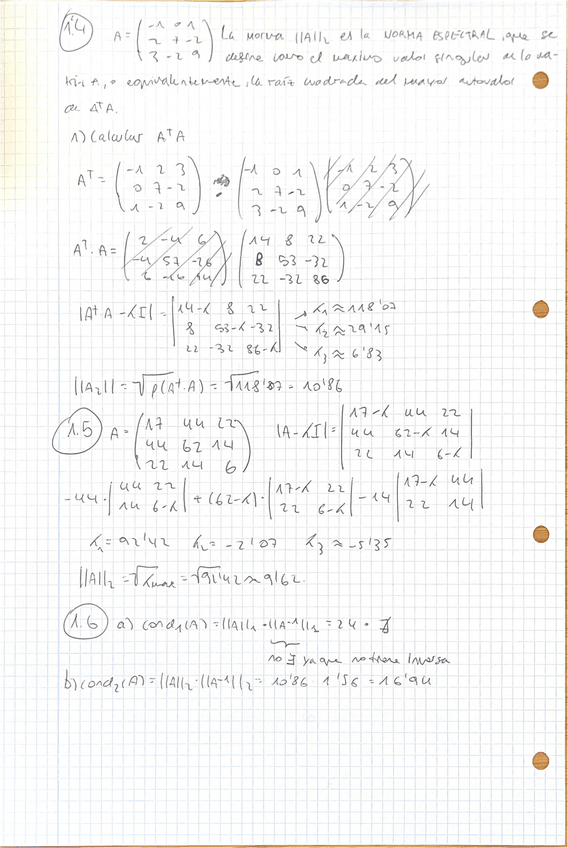 1.4 A = (-1 0 1 / 2 7 -2 / 3 -2 9) La norma ||A||₂ es la NORMA ESPECTRAL, que se
define como el máximo valor singular de la ma-
triz A, o equivalentemente, la raíz cuadrada del mayor autovalor
de AᵗA.
1) Calcular AᵗA
Aᵀ = (-1 2 3 / 0 7 -2 / 1 -2 9) ⇒ (-1 0 1 / 2 7 -2 / 3 -2 9) (-1 2 3 / 0 7 -2 / 1 -2 9)
Aᵀ·A = (2 -4 6 / -4 57 -26 / 6 -26 94) (14 8 22 / 8 53 -32 / 22 -32 86)
|Aᵗ·A - λI| = |14-λ 8 22 / 8 53-λ -32 / 22 -32 86-λ| → λ₁ ≈ 118'07
λ₂ ≈ 29'15
λ₃ ≈ 6'83
||A₂|| = √ρ(Aᵗ·A) = √118'07 = 10'86
1.5 A = (17 44 22 / 44 62 14 / 22 14 6) |A-λI| = |17-λ 44 22 / 44 62-λ 14 / 22 14 6-λ|
-44·|44 22 / 14 6-λ| + (62-λ)·|17-λ 22 / 22 6-λ| - 14 |17-λ 44 / 22 14|
λ₁ = 92'42 λ₂ = -2'07 λ₃ ≈ -5'35
||A||₂ = √λmax = √92'42 ≈ 9'62.
1.6 a) cond₁(A) = ||A||₁·||A⁻¹||₁ = 24 · ∄
no ∃ ya que no tiene inversa
b) cond₂(A) = ||A||₂·||A⁻¹||₂ = 10'86 · 1'56 = 16'94